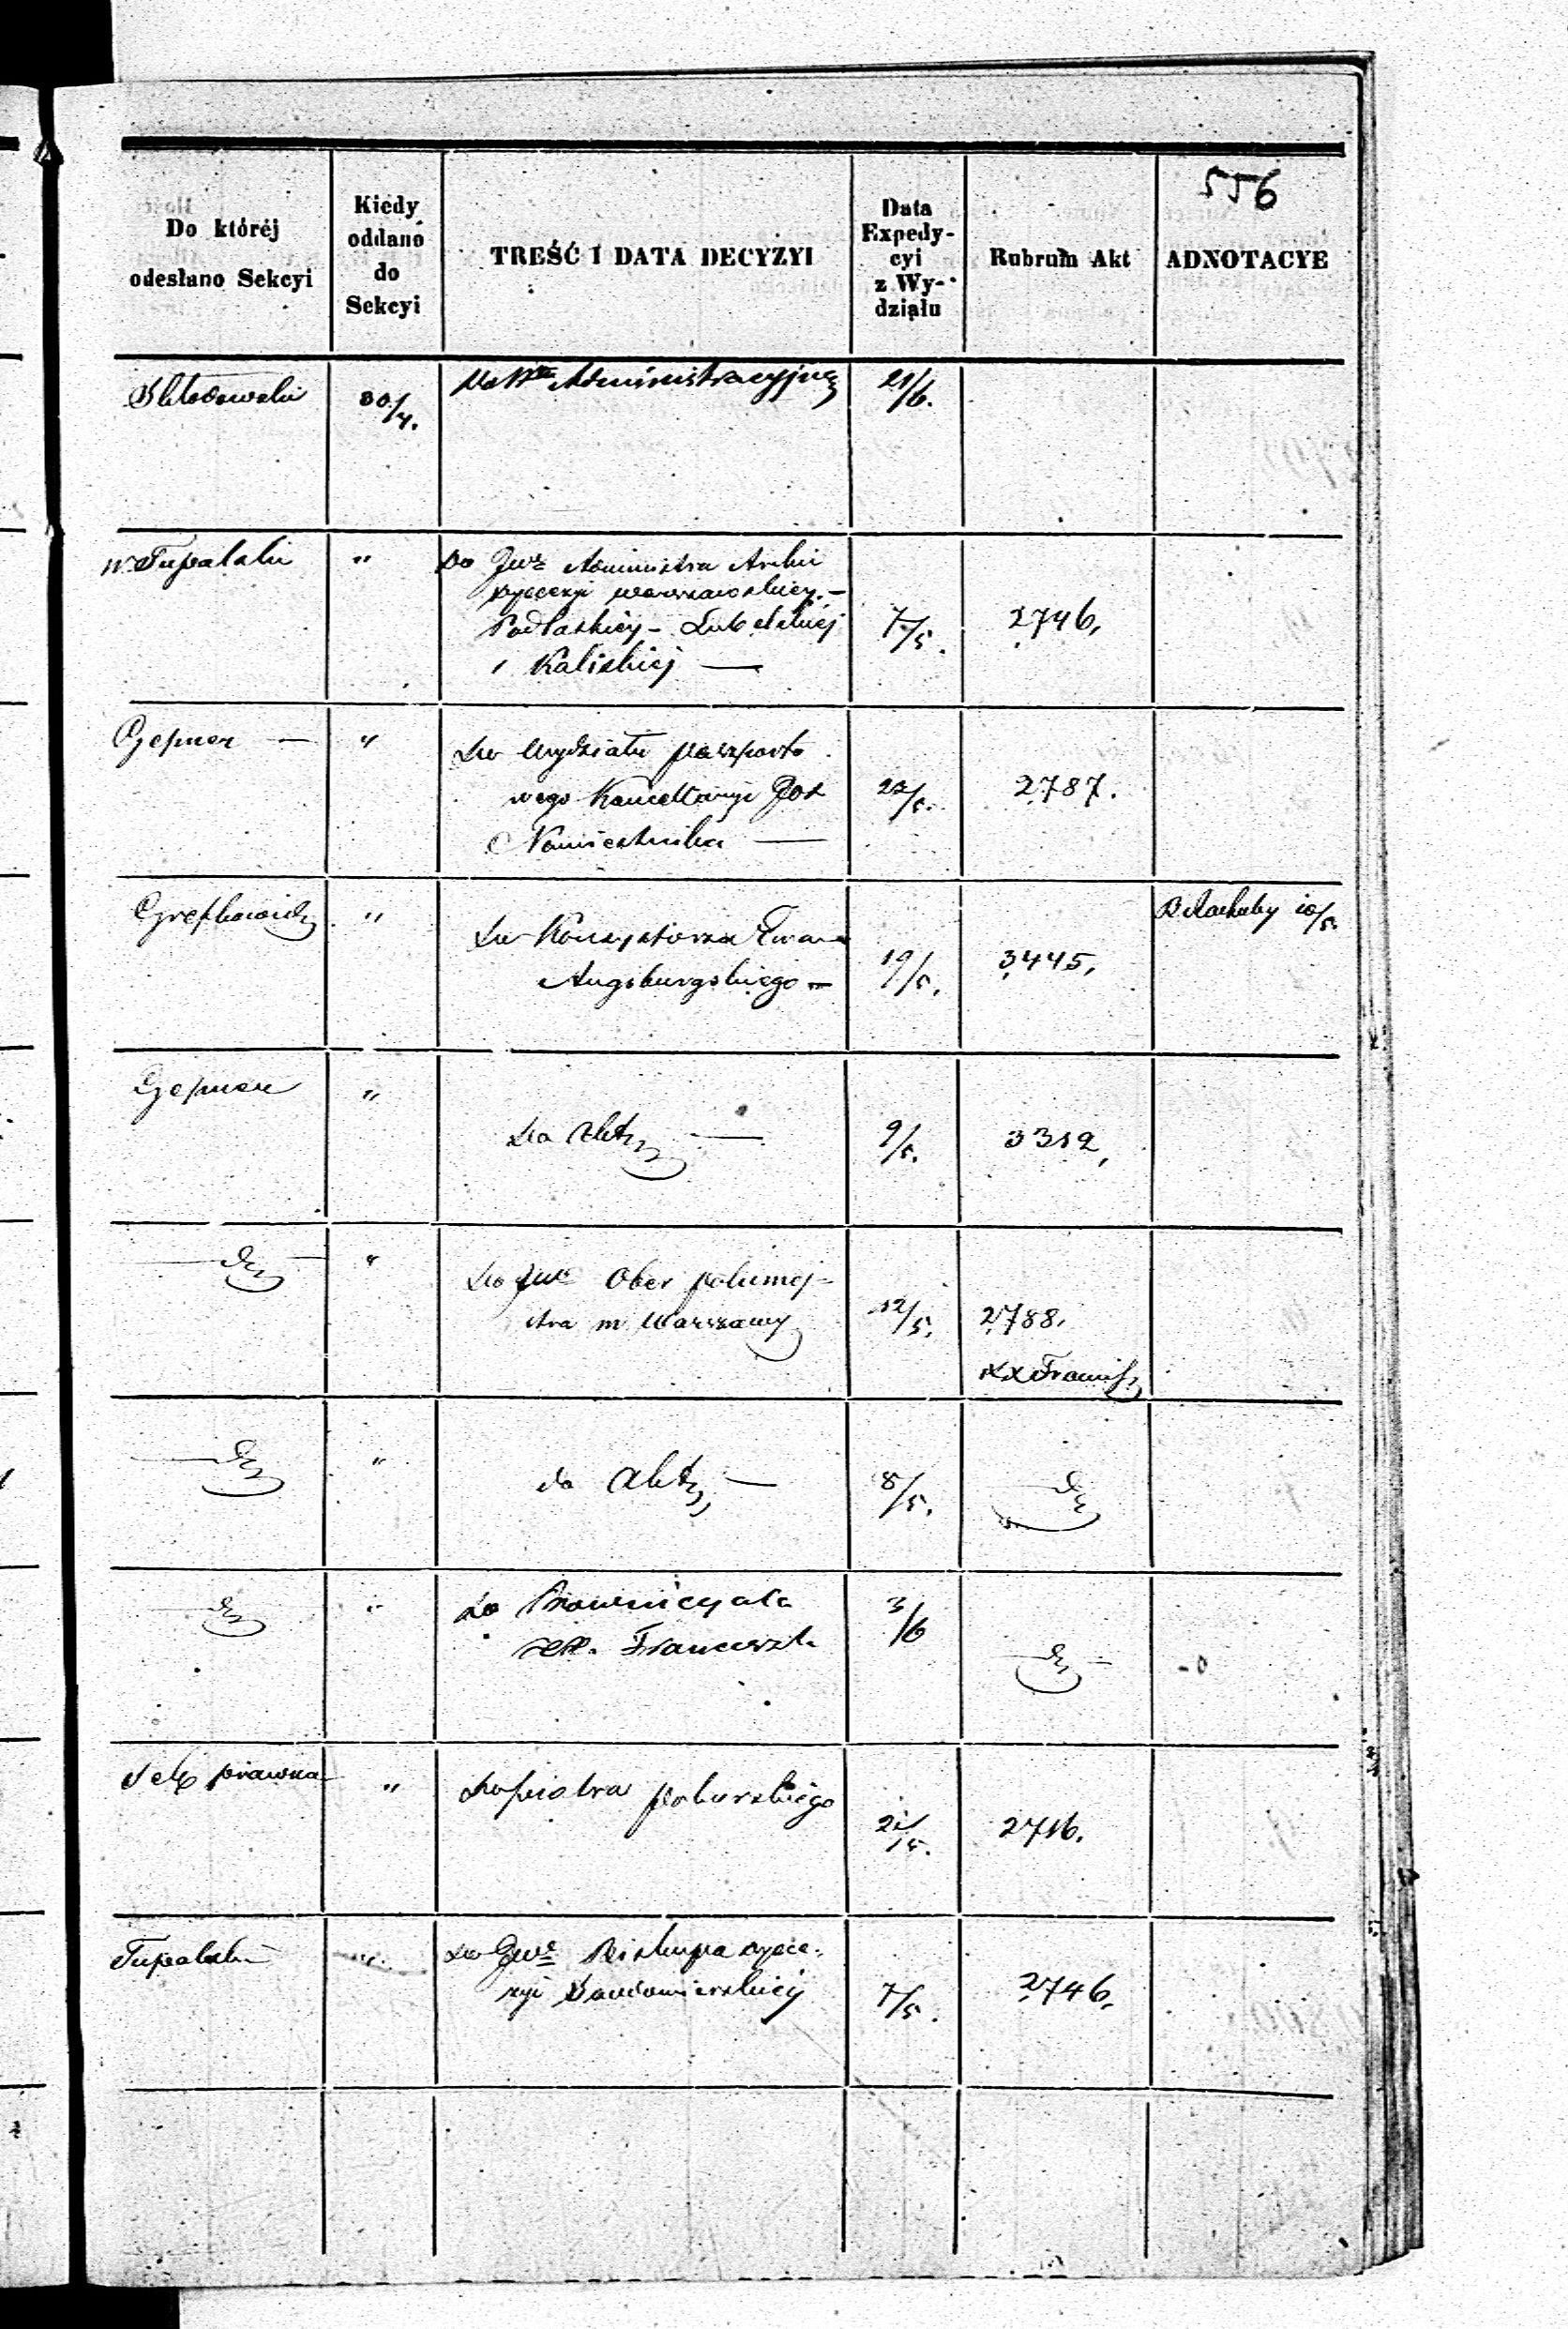 556
Do któréj
odesłano Sekcyi
Kiedy
oddano
do
Sekcyi
TREŚĆ I DATA DECYZYI
Data
Expedy-
cyi
z Wy-
działu
Rubrum Akt
ADNOTACYE
30/4.
Administracyjną
21/6.
Tupalski
"
Do JWo Administra Archi
dyecezji warszawskiey. –
Podlaskiey – Lubelskiej
i Kaliskiej —
7/5.
2746,
Gepner —
"
Do Wydziału paszporto
wego Kancellaryi JOX
Namiestnika —
22/5.
2787.
"
Do Konsystorza Ewan
Augsburgskiego –
19/5.
3445,
10/5.
Gepner
"
Do Akt —
9/5.
3312,
— dto —
"
Do JWo Ober policmej-
stra m Warszawy
12/5.
2788.
XX Francisz
— dto
"
do Akt —
8/5.
dto
dto
"
Do Prowincyała
Franciszk.
3/6
dto –
Sek prawna
"
Do Piotra
21/5.
2716.
Tupalski
"
Do JWo Biskupa dyece-
zyi Sandomierskiey
7/5.
2746,